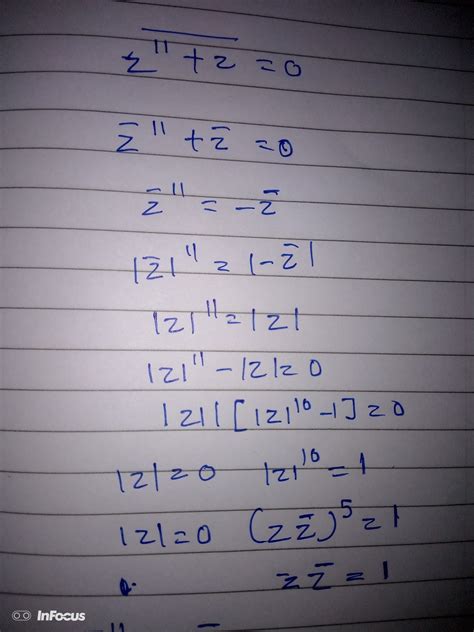 z̅¹¹ ̅+̅ ̅z̅ = 0
z̄¹¹ + z̄ = 0
z̄¹¹ = -z̄
|z̄|¹¹ = |-z̄|
|z|¹¹ = |z|
|z|¹¹ - |z| = 0
|z| [|z|¹⁰ - 1] = 0
|z| = 0 |z|¹⁰ = 1
|z| = 0 (z z̄)⁵ = 1
z z̄ = 1
InFocus